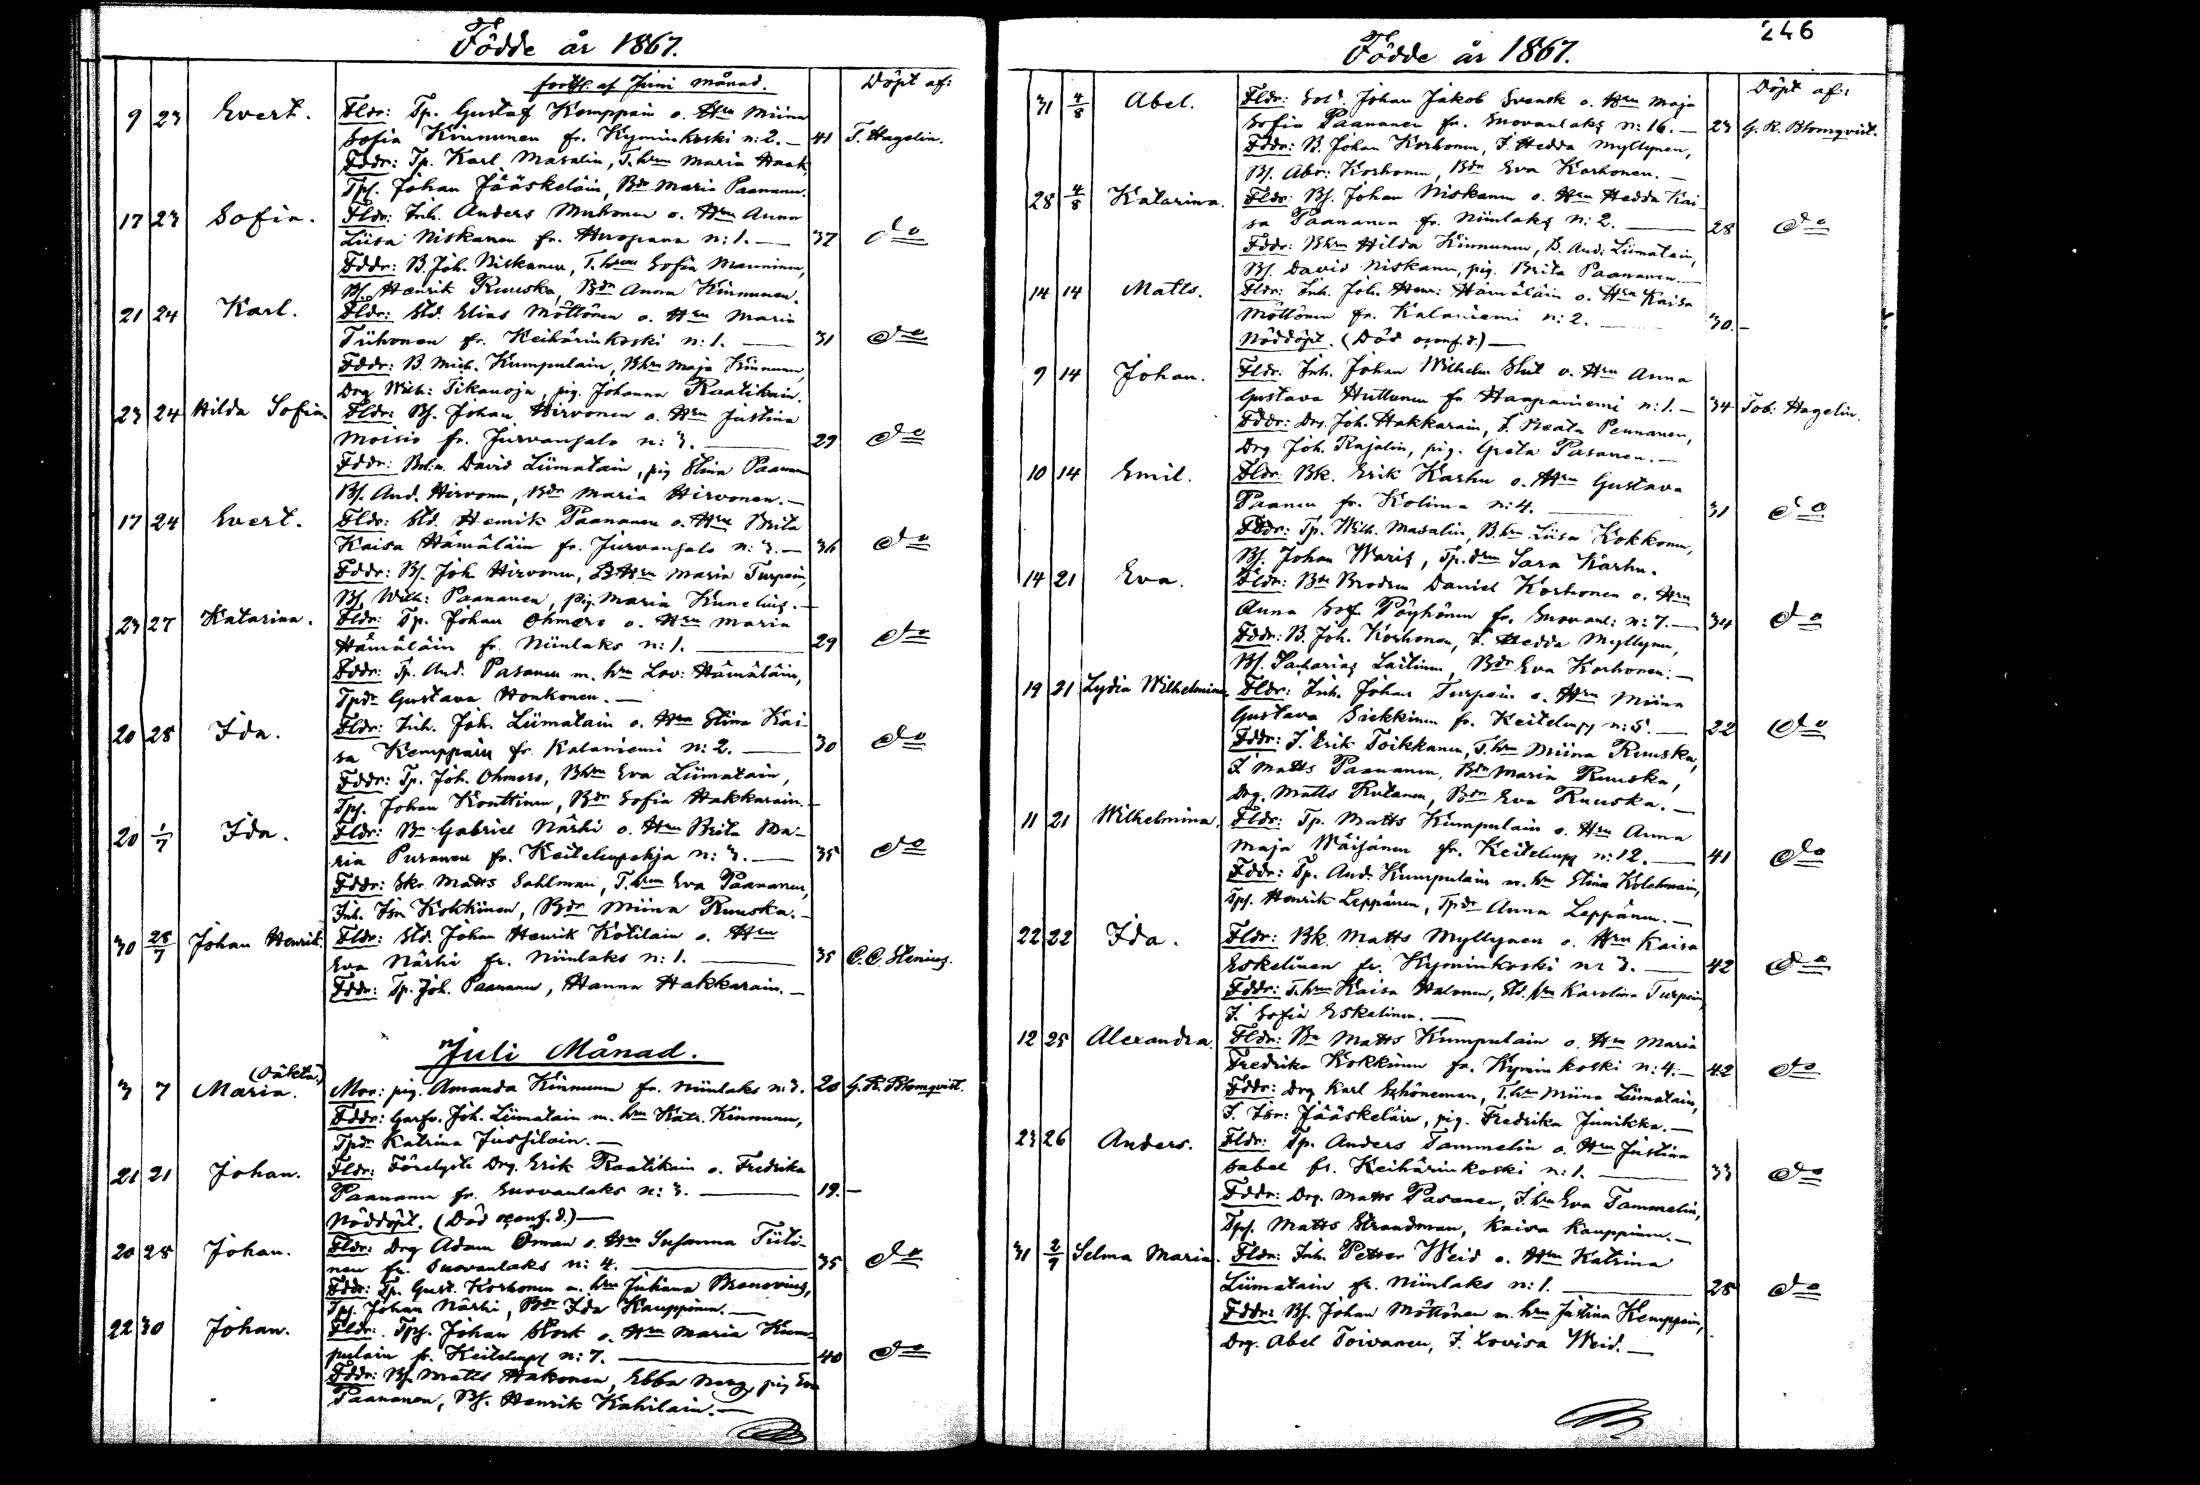 Födde år 1867.
forts. af Juni månad.
Döpt af:
9 23 Evert. Fldr: Tp. Gustaf Kemppain o. Hru Miina
Sofia Kinnunen fr. Kyminkoski n:2. — 41 T. Hagelin.
Fddr: Tp. Karl Masalin, T.hru Maria Haak,
Tps. Johan Jääskeläin, Bdr Maria Paananen.
17 23 Sofia. Fldr: Inh. Anders Muhonen o. Hru Anna
Liisa Niskanen fr. Huopana n:1. — 37 do
Fddr: B. Joh. Niskanen, T.hru Sofia Manninen,
Bs. Henrik Ruuska, Bdr Anna Kinnunen.
21 24 Karl. Fldr: Std. Elias Möttönen o. Hru Maria
Tiihonen fr. Keihärinkoski n:1. — 31 do
Fddr: B. Mich. Kumpulain, Bhru Maja Kinnunen,
Drg Wilh: Tikanoja, pig. Johanna Raatikain.
23 24 Hilda Sofia Fldr: Bs. Johan Hirvonen o. Hru Justina
Moisio fr. Jurvansalo n:3. — 29 do
Fddr: David Liimatain, pig Stina Paananen
Bs. And. Hirvonen, Bdr Maria Hirvonen. —
17 24 Evert. Fldr: Std. Henrik Paananen o. Hru Brita
Kaisa Hämäläin fr. Jurvansalo n:3. — 36 do
Fddr: Bs. Joh. Hirvonen, BHru Maria Turpein,
Bs. Wilh: Paananen, pig. Maria Kunelius. —
23 27 Katarina. Fldr: Tp. Johan Ohmero o. Hru Maria
Hämäläin fr. Niinilaks n:1. — 29 do
Fddr: Tp. And. Pasanen m. hru Lov: Hämäläin,
Tpdr Gustava Honkonen. —
20 28 Ida. Fldr: Inh. Joh. Liimatain o. Hru Stina Kai-
sa Kemppain fr. Kalaniemi n:2. — 30 do
Fddr: Tp. Joh. Ohmero, Bhru Eva Liimatain,
Tps. Johan Konttinen, Bdr Sofia Hakkarain. —
20 1/7 Ida. Fldr: Bn Gabriel Närhi o. Hru Brita Ma-
ria Puranen fr. Keitelepohja n:3. — 35 do
Fddr: Skr. Matts Sahlman, T.hru Eva Paananen,
Inh. Isr Kokkinen, Bdr Miina Ruuska. —
30 28/7 Johan Henrik. Fldr: Std. Johan Henrik Kotilain o. Hru
Eva Närhi fr. Niinilaks n:1. — 35 C. C. Stenius.
Fddr: Tp. Joh. Paananen, Hanna Hakkarain. —
Juli Månad.
(oäkta)
3 7 Maria. Mor: pig. Amanda Kinnunen fr. Niinilaks n:3. 20 G. R. Blomqvist.
Fddr: Garfv. Joh. Liimatain m. hru Katr. Kinnunen,
Tpdr Katrina Jussilain. —
21 21 Johan. Fldr: Förelofte Drg. Erik Raatikain o. Fredrika
Paananen fr. Suovanlaks n:3. — 19. —
Nöddöpt. (Död s.d.) —
20 28 Johan. Fldr: Drg Adam Öman o. Hru Susanna Tiiti-
nen fr. Suovanlaks n:4. — 35 do
Fddr: Tp. Gust. Korhonen m. hru Juliana Bronovius,
Tps. Johan Närhi, Bdr Ida Kauppinen. —
22 30 Johan. Fldr: Tps. Johan Stork o. Hru Maria Kum-
pulain fr. Keitelep n:7. — 40 do
Fddr: Bs. Matts Hakonen, Ebba Berg, pig Eva
Paananen, Bs. Henrik Kahilain. —
246
Födde år 1867.
Döpt af:
31 4/8 Abel. Fldr: Sold. Johan Jakob Svensk o. Hru Maja
Sofia Paananen fr. Suovanlaks n:16. — 23 G. R. Blomqvist.
Fddr: B. Johan Korhonen, I. Hedda Myllynen,
Bs. Abr: Korhonen, Bdr Eva Korhonen. —
28 4/8 Katarina. Fldr: Bs. Johan Niskanen o. Hru Hedda Kai-
sa Paananen fr. Niinilaks n:2. — 28 do
Fddr: Bhru Hilda Kinnunen, B. And: Liimatain,
Bs. David Niskanen, pig. Brita Paananen. —
14 14 Matts. Fldr: Inh. Joh. Henr: Hämäläin o. Hru Kaisa
Möttönen fr. Kalaniemi n:2. — 30. —
Nöddöpt. (Död s.d.) —
9 14 Johan. Fldr: Inh. Johan Wilhelm Slut o. Hru Anna
Gustava Huttunen fr. Haapaniemi n:1. — 34 Tob: Hagelin.
Fddr: Drg. Joh. Hakkarain, I. Beata Pennanen,
Drg Joh. Rajalin, pig. Greta Pasanen. —
10 14 Emil. Fldr: Bk. Erik Karhu o. Hru Gustava
Paanen fr. Kolima n:4. — 31 do
Fddr: Tp. Wilh. Masalin, B.hru Liisa Kokkonen,
Bs. Johan Waris, Tp.dru Sara Karhu.
14 21 Eva. Fldr: Bn Brodren Daniel Korhonen o. Hru
Anna Sof. Pöyhönen fr. Suovanl: n:7. — 34 do
Fddr: B. Joh. Korhonen, I. Hedda Myllynen,
Bs. Sacharias Laitinen, Bdr Eva Korhonen. —
19 21 Lydia Wilhelmina. Fldr: Inh. Johan Turpein o. Hru Miina
Gustava Sirkkinen fr. Keitelep n:5. — 22 do
Fddr: I. Erik Toikkanen, T.hru Miina Ruuska,
I Matts Paananen, Bdr Maria Ruuska,
Drg. Matts Rutanen, Bdr Eva Ruuska. —
11 21 Wilhelmina. Fldr: Tp. Matts Kumpulain o. Hru Anna
Maja Wäisänen fr. Keitelep n:12. — 41 do
Fddr: Tp. And. Kumpulain m. hru Stina Kolehmain,
Tps. Henrik Leppänen, Tpdr Anna Leppänen. —
22 22 Ida. Fldr: Bk. Matts Myllynen o. Hru Kaisa
Eskelinen fr. Kyminkoski n:3. — 42 do
Fddr: T.hru Kaisa Halonen, Std.hru Karolina Turpein,
I. Sofia Eskelinen. —
12 25 Alexandra. Fldr: Bn Matts Kumpulain o. Hru Maria
Fredrika Kokkinen fr. Kyminkoski n:4. — 42 do
Fddr: Drg Karl Schöneman, T.hru Miina Liimatain,
I. Isr: Jääskeläin, pig. Fredrika Junikka. —
23 26 Anders. Fldr: Tp. Anders Tammelin o. Hru Justina
Sabel fr. Keihärinkoski n:1. — 33 do
Fddr: Drg. Matts Pasanen, I.hru Eva Tammelin,
Tps. Matts Strandman, Kaisa Kauppinen. —
31 2/9 Selma Maria. Fldr: Inh. Petter Weid o. Hru Katrina
Liimatain fr. Niinilaks n:1. — 28 do
Fddr: Bs. Johan Möttönen m. hru Justina Kemppain,
Drg. Abel Toivanen, I. Lovisa Weid. —